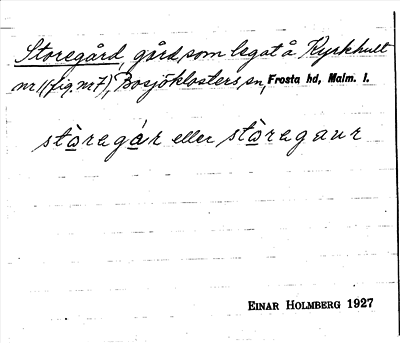 Storegård, gård, som legat å Kyrkhult
nr 1 (fig. nr 7), Bosjöklosters sn, Frosta hd, Malm. l.
stòregár eller stòregaur
EINAR HOLMBERG 1927